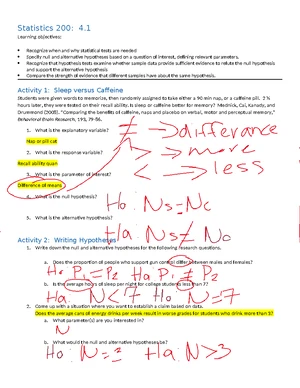 Statistics 200: 4.1
Learning objectives:
• Recognize when and why statistical tests are needed
• Specify null and alternative hypotheses based on a question of interest, defining relevant parameters.
• Recognize that hypothesis tests examine whether sample data provide sufficient evidence to refute the null hypothesis and support the alternative hypothesis
• Compare the strength of evidence that different samples have about the same hypothesis.
Activity 1: Sleep versus Caffeine
Students were given words to memorize, then randomly assigned to take either a 90 min nap, or a caffeine pill. 2 ½
hours later, they were tested on their recall ability. Is sleep or caffeine better for memory? Mednick, Cai, Kanady, and
Drummond (2008). "Comparing the benefits of caffeine, naps and placebo on verbal, motor and perceptual memory,"
Behavioral Brain Research, 193, 79-86.
1. What is the explanatory variable?
≠ → difference
Nap or pill cat
> → more
2. What is the response variable?
< → less
Recall ability quan
3. What is the parameter of interest?
Difference of means
4. What is the null hypothesis?
Ho: Ns=Nc
5. What is the alternative hypothesis?
Ha: Ns≠Nc
Activity 2: Writing Hypotheses
1. Write down the null and alternative hypotheses for the following research questions.
a. Does the proportion of people who support gun control differ between males and females?
Ho P1=P2 Ha P1≠P2
b. Is the average hours of sleep per night for college students less than 7?
Ha: N<7 Ho: N=7
2. Come up with a situation where you want to establish a claim based on data.
Does the average cans of energy drinks per week result in worse grades for students who drink more than 3?
a. What parameter(s) are you interested in?
N
b. What would the null and alternative hypotheses be?
Ho: N=3 Ha: N>3